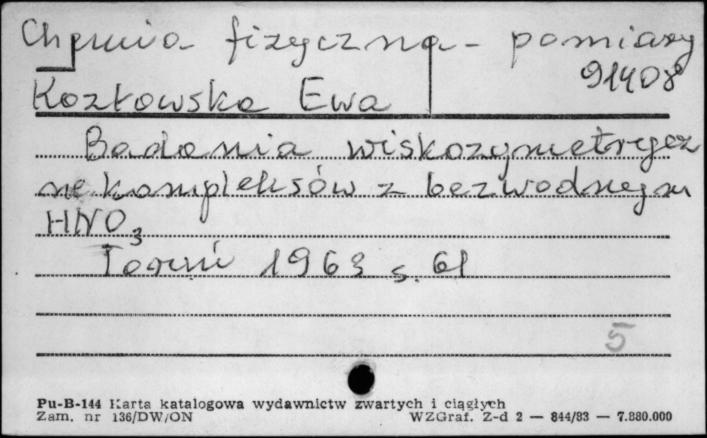 Chemia fizyczna - pomiary
91408
Kozłowska Ewa
Badania wiskozymetrycz
ne kompleksów z bezwodnym
HNO3
Toruń 1963 s. 61
5
Pu-B-144 Karta katalogowa wydawnictw zwartych i ciągłych
Zam. nr 136/DW/ON WZGraf. Z-d 2 — 844/83 — 7.880.000